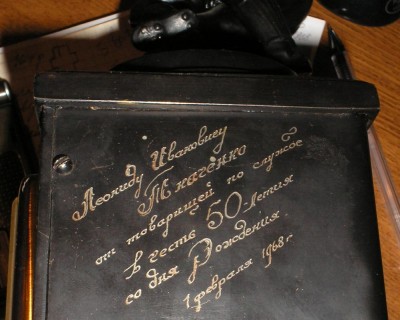 Леониду Ивановичу
Ткаченко
от товарищей по службе
в честь 50-Летия
со дня Рождения
1 февраля 1968 г.